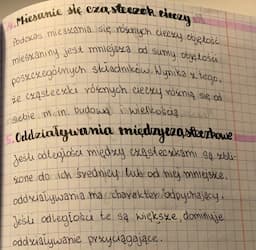 4. Mieszanie się cząsteczek cieczy
Podczas mieszania się różnych cieczy objętość
mieszaniny jest mniejsza od sumy objętości
poszczególnych składników. Wynika z tego,
że cząsteczki różnych cieczy różnią się od
siebie m.in. budową i wielkością.
5. Oddziaływania międzycząsteczkowe
Jeśli odległości między cząsteczkami są zbli-
żone do ich średnicy lub od niej mniejsze,
oddziaływania ma charakter odpychający.
Jeśli odległości te są większe, dominuje
oddziaływanie przyciągające.